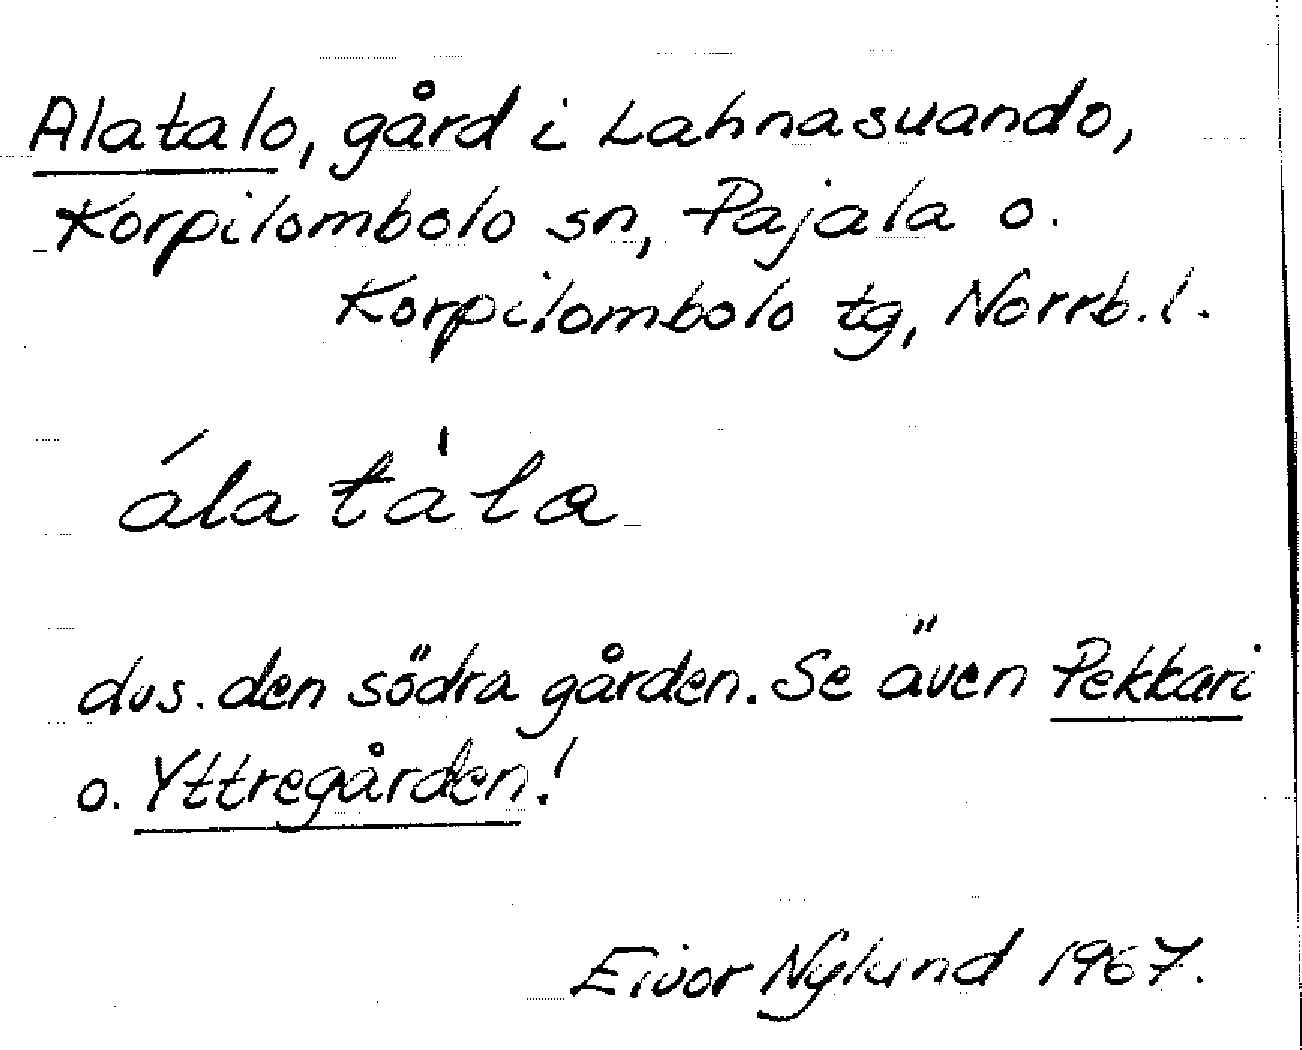 Alatalo, gård i Lahnasuando,
Korpilombolo sn, Pajala o.
Korpilombolo tg, Norrb.l.
ála tàla
dvs. den södra gården. Se även Pekkari
o. Yttregården!
Eivor Nylund 1967.